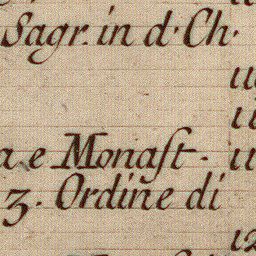 Sagr. in d. Ch.
a e Monast.
3. Ordine di